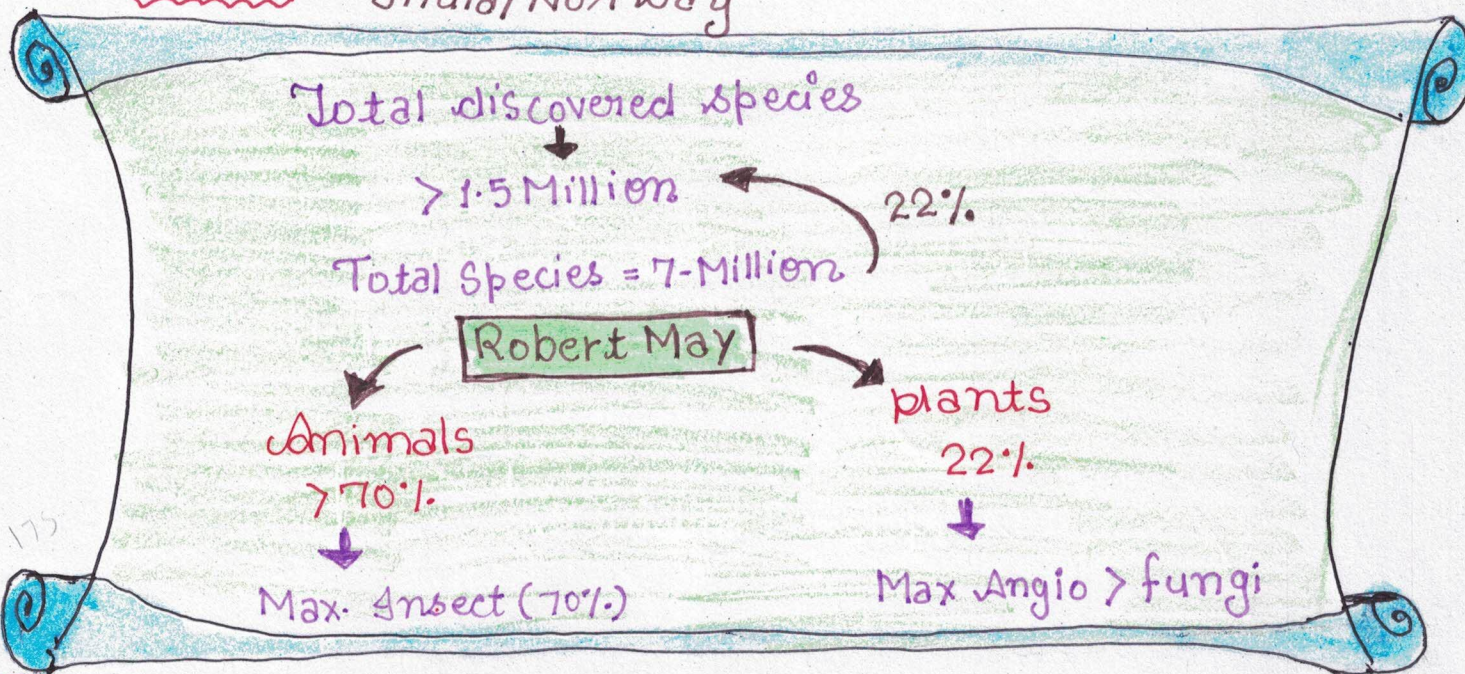 India/Norway
Total discovered species
> 1.5 Million
22%
Total Species = 7-Million
Robert May
Animals
> 70%
Max. Insect (70%)
plants
22%
Max Angio > fungi
175